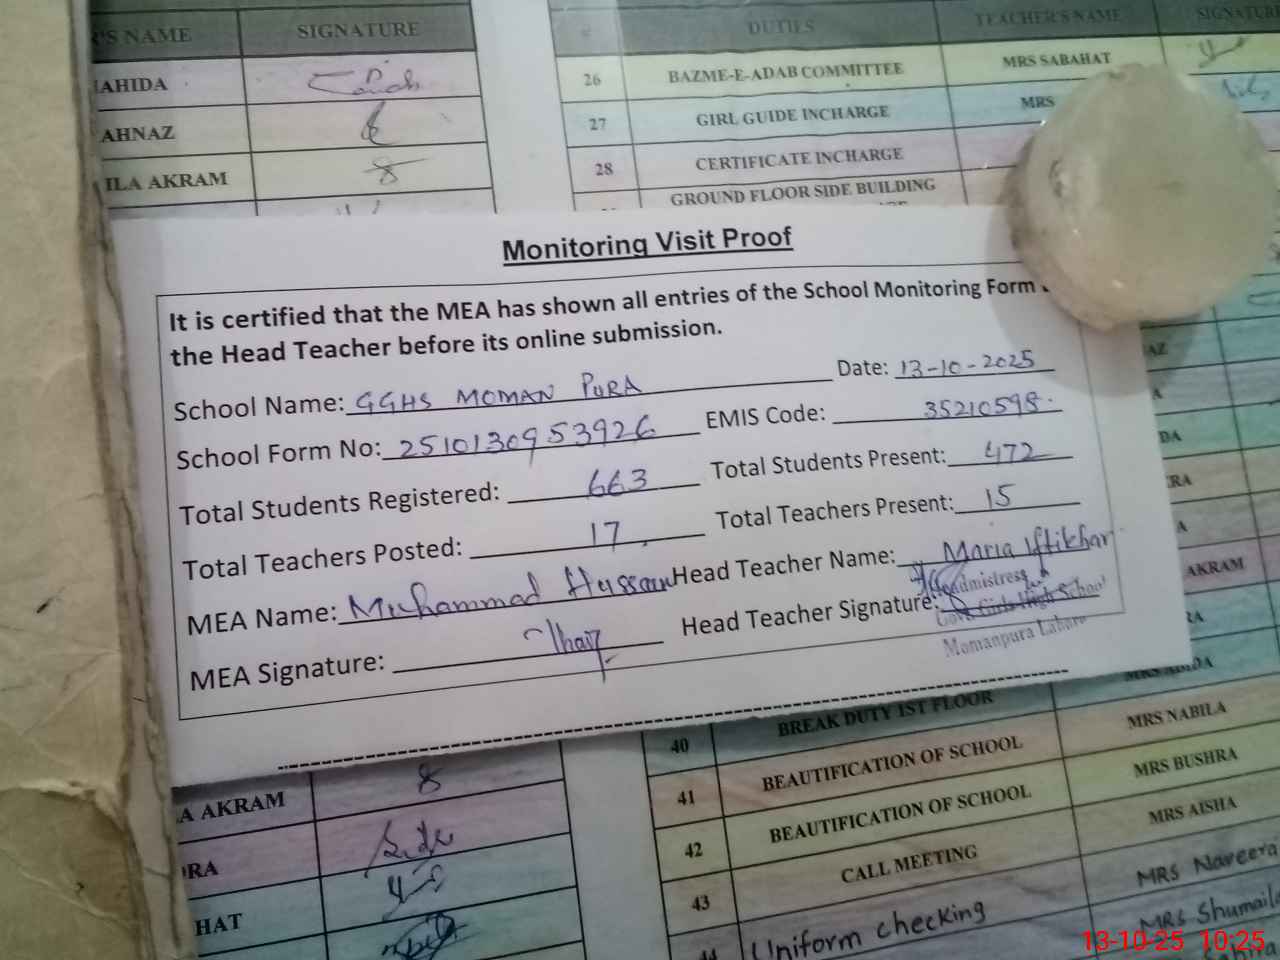 'S NAME SIGNATURE
AHIDA
AHNAZ
ILA AKRAM
# DUTIES TEACHER'S NAME SIGNATURE
26 BAZME-E-ADAB COMMITTEE MRS SABAHAT
27 GIRL GUIDE INCHARGE MRS
28 CERTIFICATE INCHARGE
GROUND FLOOR SIDE BUILDING
Monitoring Visit Proof
It is certified that the MEA has shown all entries of the School Monitoring Form
the Head Teacher before its online submission.
School Name: GGHS MOMAN PURA Date: 13-10-2025
School Form No: 2510130953926 EMIS Code: 35210598
Total Students Registered: 663 Total Students Present: 472
Total Teachers Posted: 17 Total Teachers Present: 15
MEA Name: Muhammad Hussain Head Teacher Name: Maria Iftikhar
MEA Signature: Head Teacher Signature:
Headmistress
Govt. Girls High School
Momanpura Lahore
AZ
A
DA
RA
A
AKRAM
RA
MRS ABIDA
40 BREAK DUTY 1ST FLOOR MRS NABILA
41 BEAUTIFICATION OF SCHOOL MRS BUSHRA
42 BEAUTIFICATION OF SCHOOL MRS AISHA
43 CALL MEETING MRS Naveera
44 Uniform checking MRS Shumaila
A AKRAM
RA
HAT
13-10-25 10:25